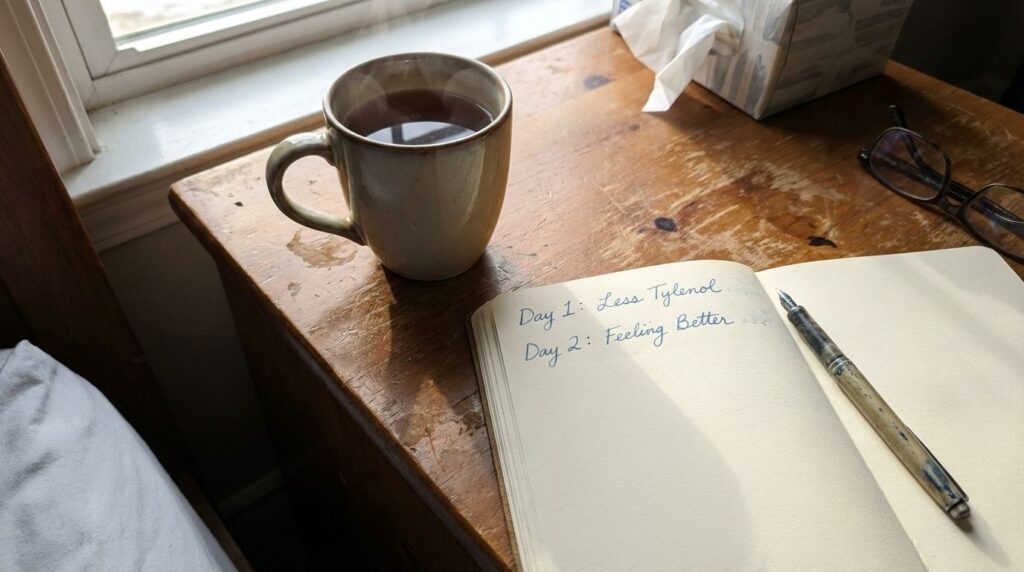 Day 1: Less Tylenol
Day 2: Feeling Better